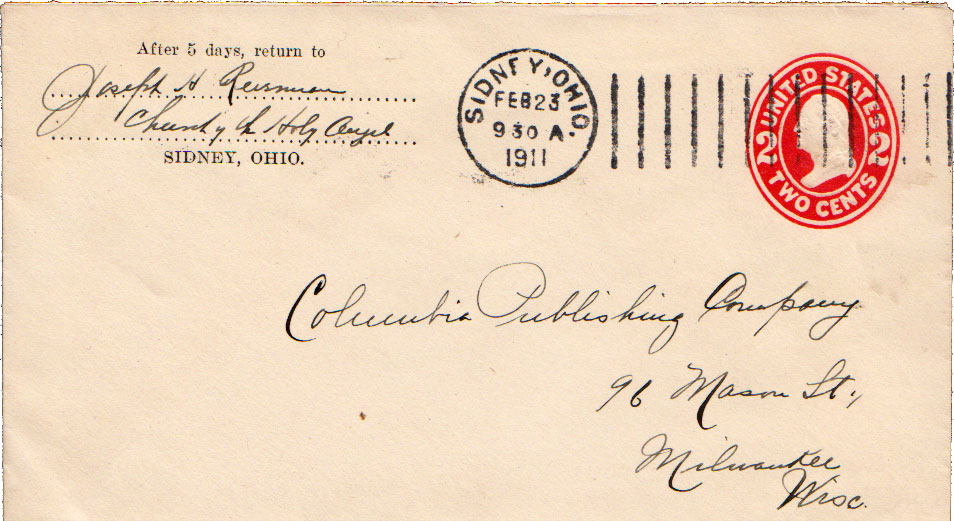 After 5 days, return to
Joseph H Reisman
Church of the Holy Angel
SIDNEY, OHIO.
SIDNEY, OHIO.
FEB 23
9 30 A
1911
UNITED STATES
2 2
TWO CENTS
Columbia Publishing Company
96 Mason St.,
Milwaukee
Wisc.